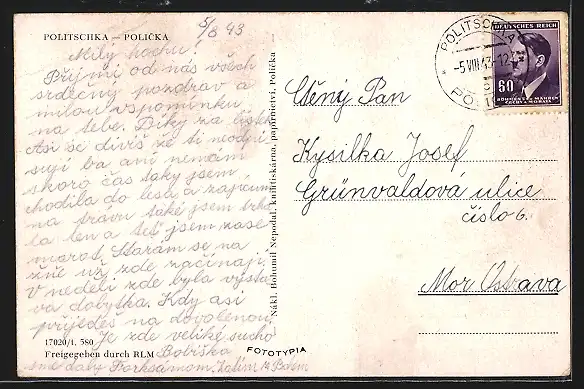 5/8 43
POLITSCHKA — POLIČKA
Milý hochu!
Přijmi od nás všech
srdečný pozdrav a
milou vzpomínku
na tebe. Díky za lístek.
Asi se divíš že ti neodpi
suji ba ani nemám
skoro čas taky jsem
chodila do lesa a zajícům
na trávu také jsem trha
la len a teď jsem zase
marod. Starám se na
žně už zde začínají.
V neděli zde byla výsta
va dobytka. Kdy asi
přijedeš na dovolenou.
Je zde veliké sucho
17020/1. 580
Freigegeben durch RLM
Bobiška
FOTOTYPIA
Nákl. Bohumil Nepodal, knihtiskárna, papírnictví, Polička
POLITSCHKA
-5.VIII.43-12
DEUTSCHES REICH
60
BÖHMEN U. MÄHREN
ČECHY A MORAVA
Ctěný Pan
Kysilka Josef
Grünvaldová ulice
číslo 6.
Mor. Ostrava